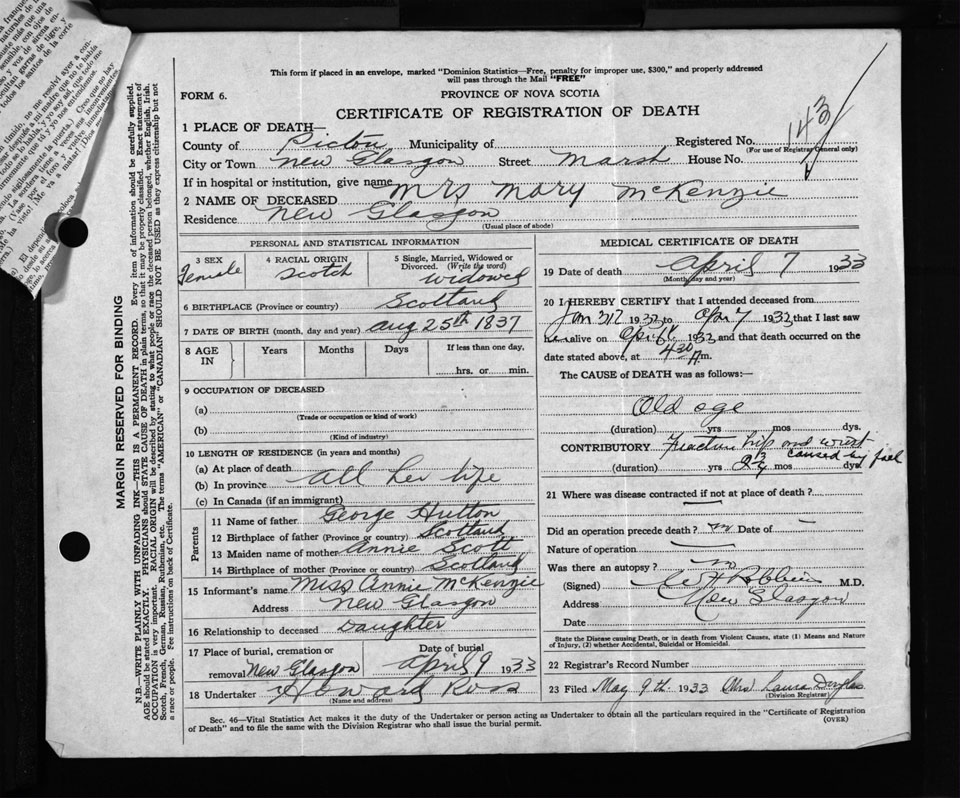 This form if placed in an envelope, marked "Dominion Statistics—Free, penalty for improper use, $300," and properly addressed
will pass through the Mail "FREE"
FORM 6.
PROVINCE OF NOVA SCOTIA
CERTIFICATE OF REGISTRATION OF DEATH
143
1 PLACE OF DEATH—
County of Pictou Municipality of Registered No.
(For use of Registrar General only)
City or Town New Glasgow Street Marsh House No.
If in hospital or institution, give name
2 NAME OF DECEASED Mrs Mary McKenzie
Residence New Glasgow
(Usual place of abode)
PERSONAL AND STATISTICAL INFORMATION
3 SEX Female
4 RACIAL ORIGIN Scotch
5 Single, Married, Widowed or Divorced. (Write the word) Widowed
6 BIRTHPLACE (Province or country) Scotland
7 DATE OF BIRTH (month, day and year) Aug 25th 1837
8 AGE IN Years Months Days If less than one day, hrs. or min.
9 OCCUPATION OF DECEASED
(a)
(Trade or occupation or kind of work)
(b)
(Kind of industry)
10 LENGTH OF RESIDENCE (in years and months)
(a) At place of death
(b) In province all her life
(c) In Canada (if an immigrant)
Parents
11 Name of father George Hutton
12 Birthplace of father (Province or country) Scotland
13 Maiden name of mother Annie Scott
14 Birthplace of mother (Province or country) Scotland
15 Informant's name Miss Annie McKenzie
Address New Glasgow
16 Relationship to deceased Daughter
17 Place of burial, cremation or removal New Glasgow
Date of burial April 9 1933
18 Undertaker Howard Ross
(Name and address)
MEDICAL CERTIFICATE OF DEATH
19 Date of death April 7 1933
(Month, day and year)
20 I HEREBY CERTIFY that I attended deceased from
Jan 31 193 to Apr 7 1933 that I last saw
her alive on April 1933 and that death occurred on the
date stated above, at 4 30 A m.
The CAUSE of DEATH was as follows:—
Old age
(duration) yrs mos dys.
CONTRIBUTORY Fracture hip and wrist
caused by fall
(duration) yrs 2 mos dys
21 Where was disease contracted if not at place of death?
Did an operation precede death? no Date of —
Nature of operation —
Was there an autopsy? no
(Signed) M.D.
Address New Glasgow
Date
State the Disease causing Death, or in death from Violent Causes, state (1) Means and Nature
of Injury, (2) whether Accidental, Suicidal or Homicidal.
22 Registrar's Record Number
23 Filed May 9th 1933 Mrs Laura Douglas
(Division Registrar)
Sec. 46—Vital Statistics Act makes it the duty of the Undertaker or person acting as Undertaker to obtain all the particulars required in the "Certificate of Registration
of Death" and to file the same with the Division Registrar who shall issue the burial permit.
(OVER)
MARGIN RESERVED FOR BINDING
N.B.—WRITE PLAINLY WITH UNFADING INK—THIS IS A PERMANENT RECORD. Every item of information should be carefully supplied.
AGE should be stated EXACTLY. PHYSICIANS should STATE CAUSE OF DEATH in plain terms, so that it may be properly classified. Exact statement of
OCCUPATION is very important. RACIAL ORIGIN will be described by stating to what people or race the deceased person belonged, whether English, Irish,
Scotch, French, German, Russian, Ruthenian, etc. The terms "AMERICAN" or "CANADIAN" SHOULD NOT BE USED as they express citizenship but not
a race or people. See instructions on back of Certificate.